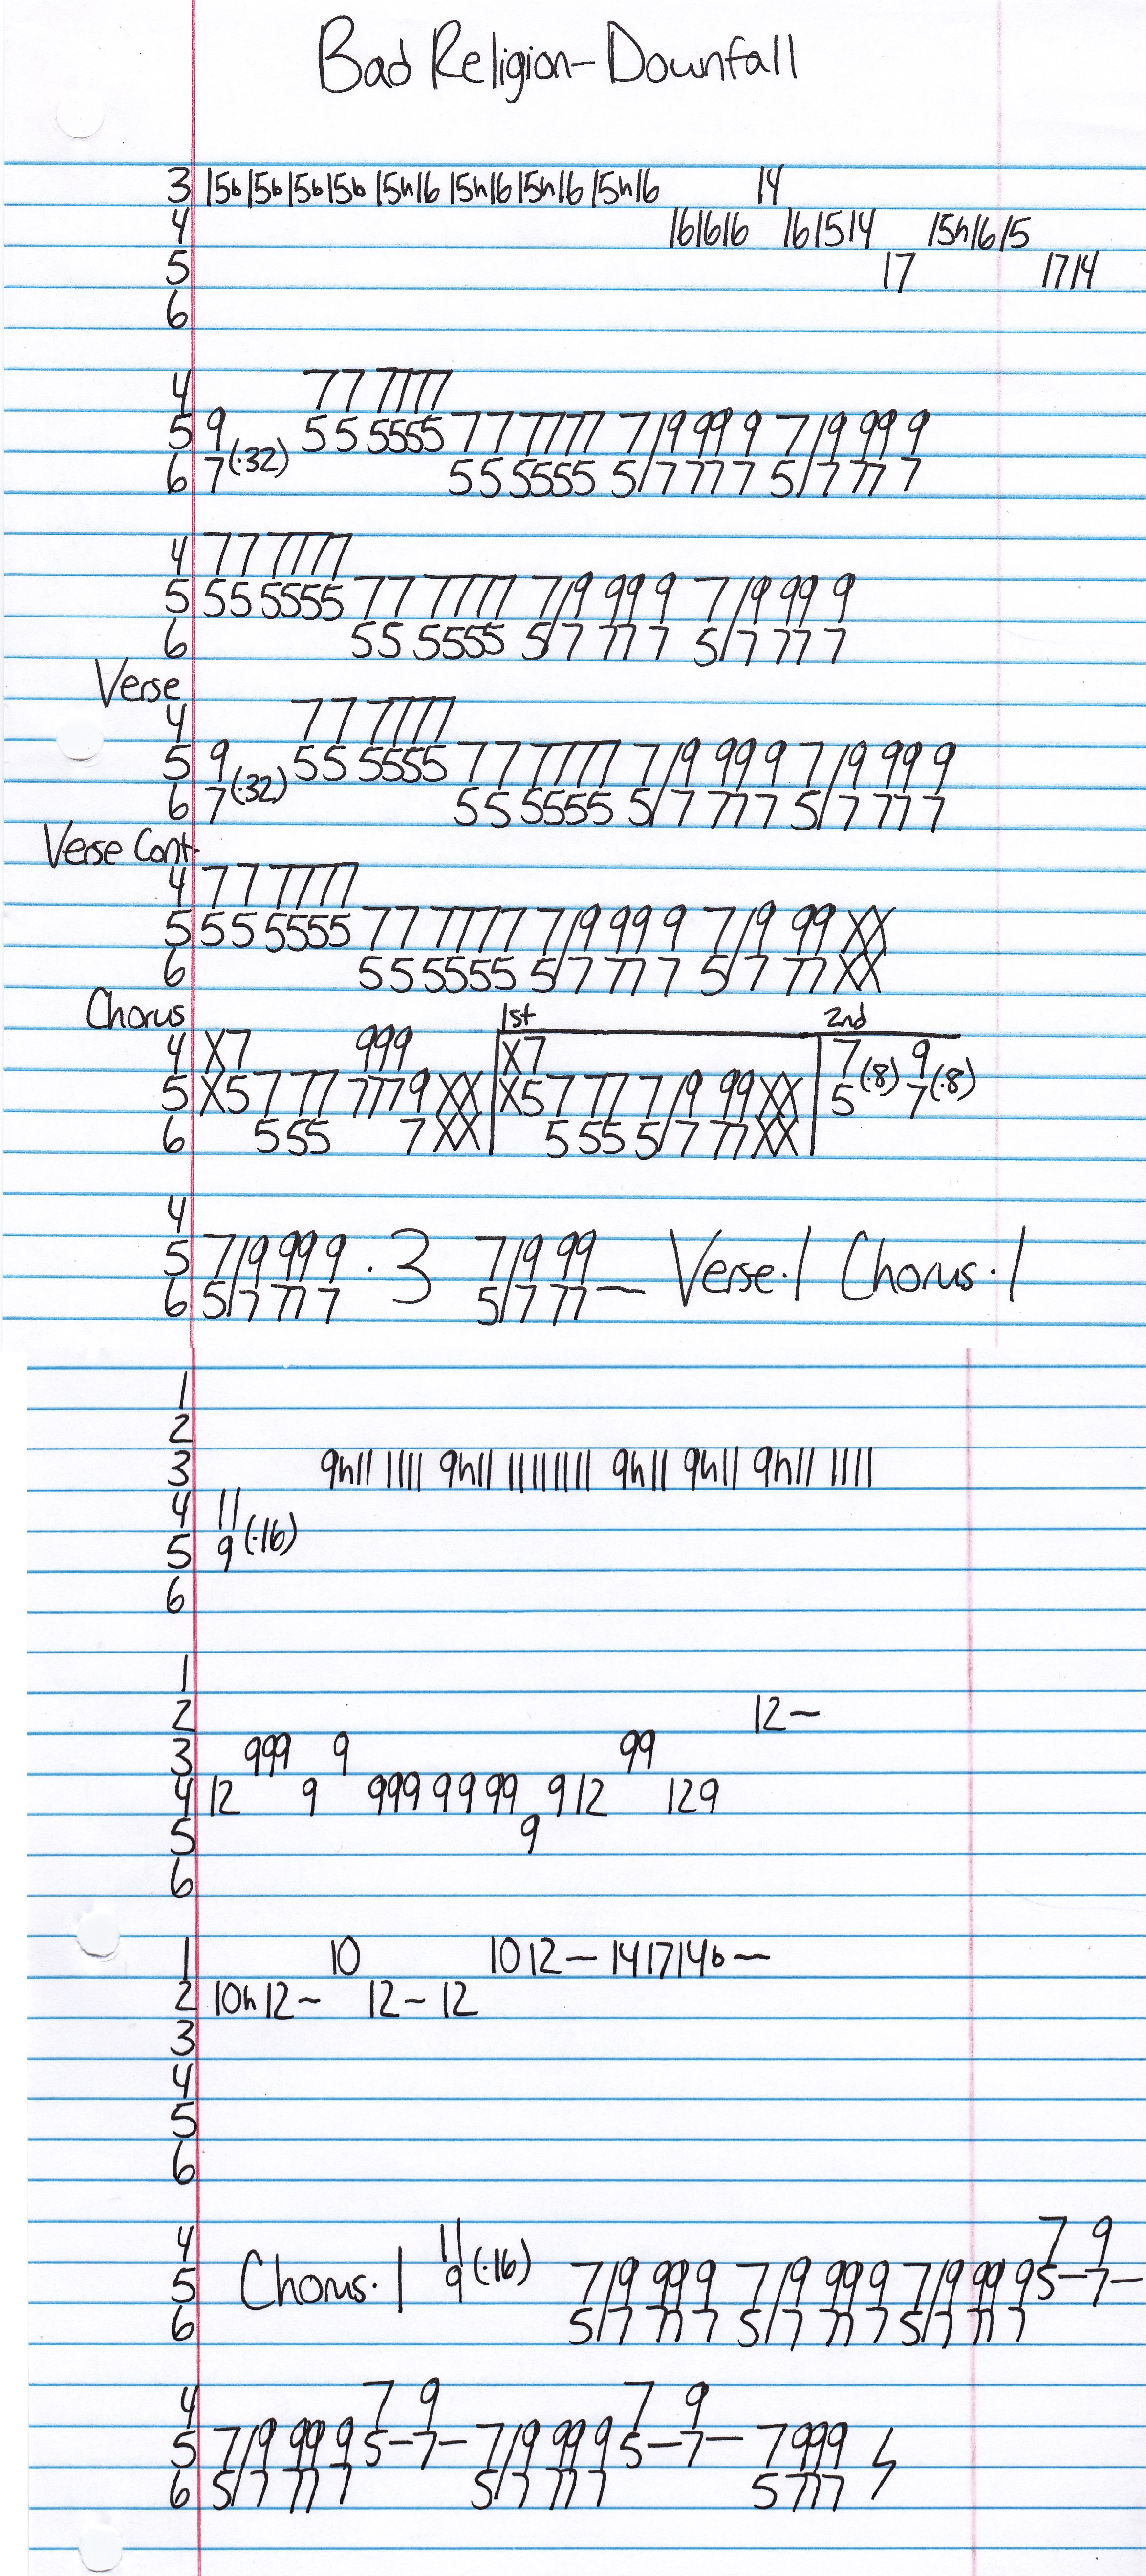 Bad Religion-Downfall
3 15b 15b 15b 15b 15h16 15h16 15h16 15h16 14
4 161616 161514 15h1615
5 17 1714
6
4 77 7777
5 9 55 5555 77 7777 7/9 99 9 7/9 99 9
6 7(·32) 55 5555 5/7 77 7 5/7 77 7
4 77 7777
5 55 5555 77 7777 7/9 99 9 7/9 99 9
6 55 5555 5/7 77 7 5/7 77 7
Verse
4 77 7777
5 9 55 5555 77 7777 7/9 99 9 7/9 99 9
6 7(·32) 55 5555 5/7 77 7 5/7 77 7
Verse Cont.
4 77 7777
5 55 5555 77 7777 7/9 99 9 7/9 99 XX
6 55 5555 5/7 77 7 5/7 77 XX
Chorus 1st 2nd
4 X7 999 X7 7(·8) 9(·8)
5 X5777 7779XX X5777 7/9 99XX 5 7
6 555 7XX 555 5/7 77XX
4
5 7/9 99 9 ·3 7/9 99 ~ Verse·1 Chorus·1
6 5/7 77 7 5/7 77
1
2
3 9h11 1111 9h11 11111111 9h11 9h11 9h11 1111
4 11
5 9(·16)
6
1
2 12~
3 999 9 99
4 12 9 999 99 99 912 129
5 9
6
1 10 1012~ 141714b~
2 10h12~ 12~12
3
4
5
6
4 11 7 9
5 Chorus·1 9(·16) 7/9 99 9 7/9 99 9 7/9 99 9 5-7-
6 5/7 77 7 5/7 77 7 5/7 77 7
4 7 9 7 9
5 7/9 99 9 5-7- 7/9 99 9 5-7- 7999
6 5/7 77 7 5/7 77 7 5777